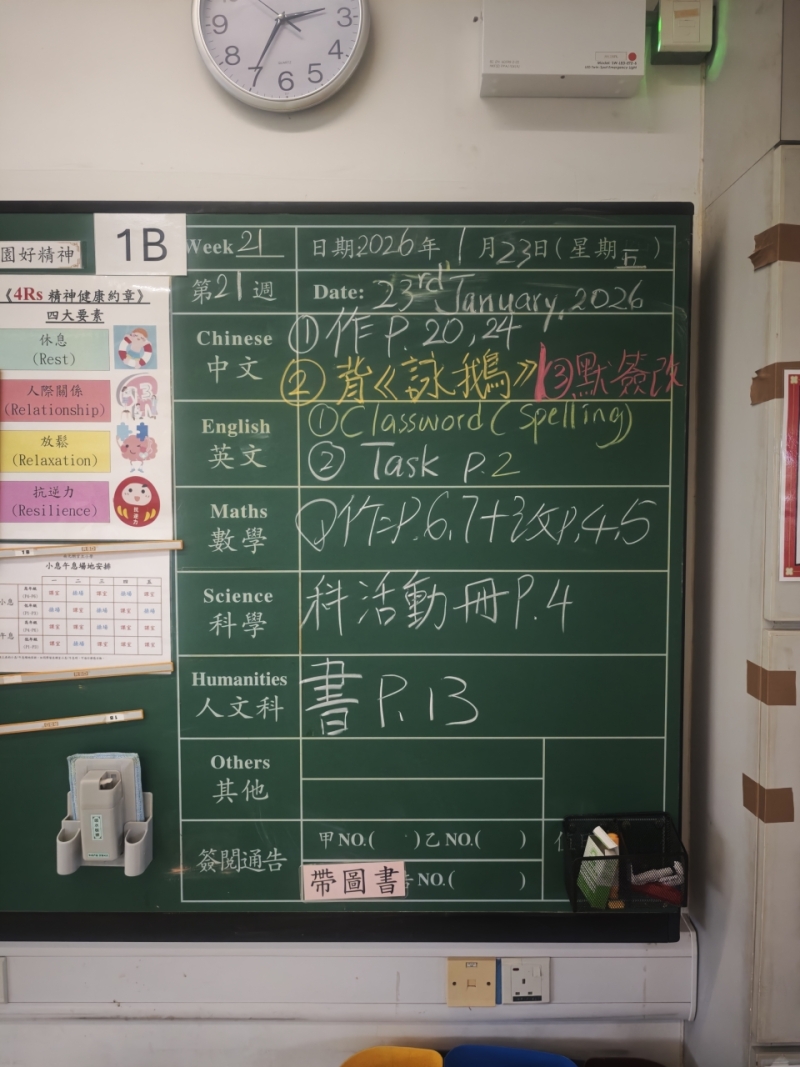 3
4
5
6
7
8
9
園好精神
1B
《4Rs 精神健康約章》
四大要素
休息
(Rest)
人際關係
(Relationship)
放鬆
(Relaxation)
抗逆力
(Resilience)
小息午息場地安排
一 二 三 四 五
Week 21 日期2026年1月23日(星期五)
第21週 Date: 23rd January, 2026
Chinese
中文
①作 P. 20, 24
②背《詠鵝》 ③默簽改
English
英文
①Classword (Spelling)
② Task P.2
Maths
數學
①作=P.6,7+改P.4,5
Science
科學
科活動冊P.4
Humanities
人文科
書 P.13
Others
其他
簽閱通告
甲NO.( )乙NO.( )
帶圖書
NO.( )